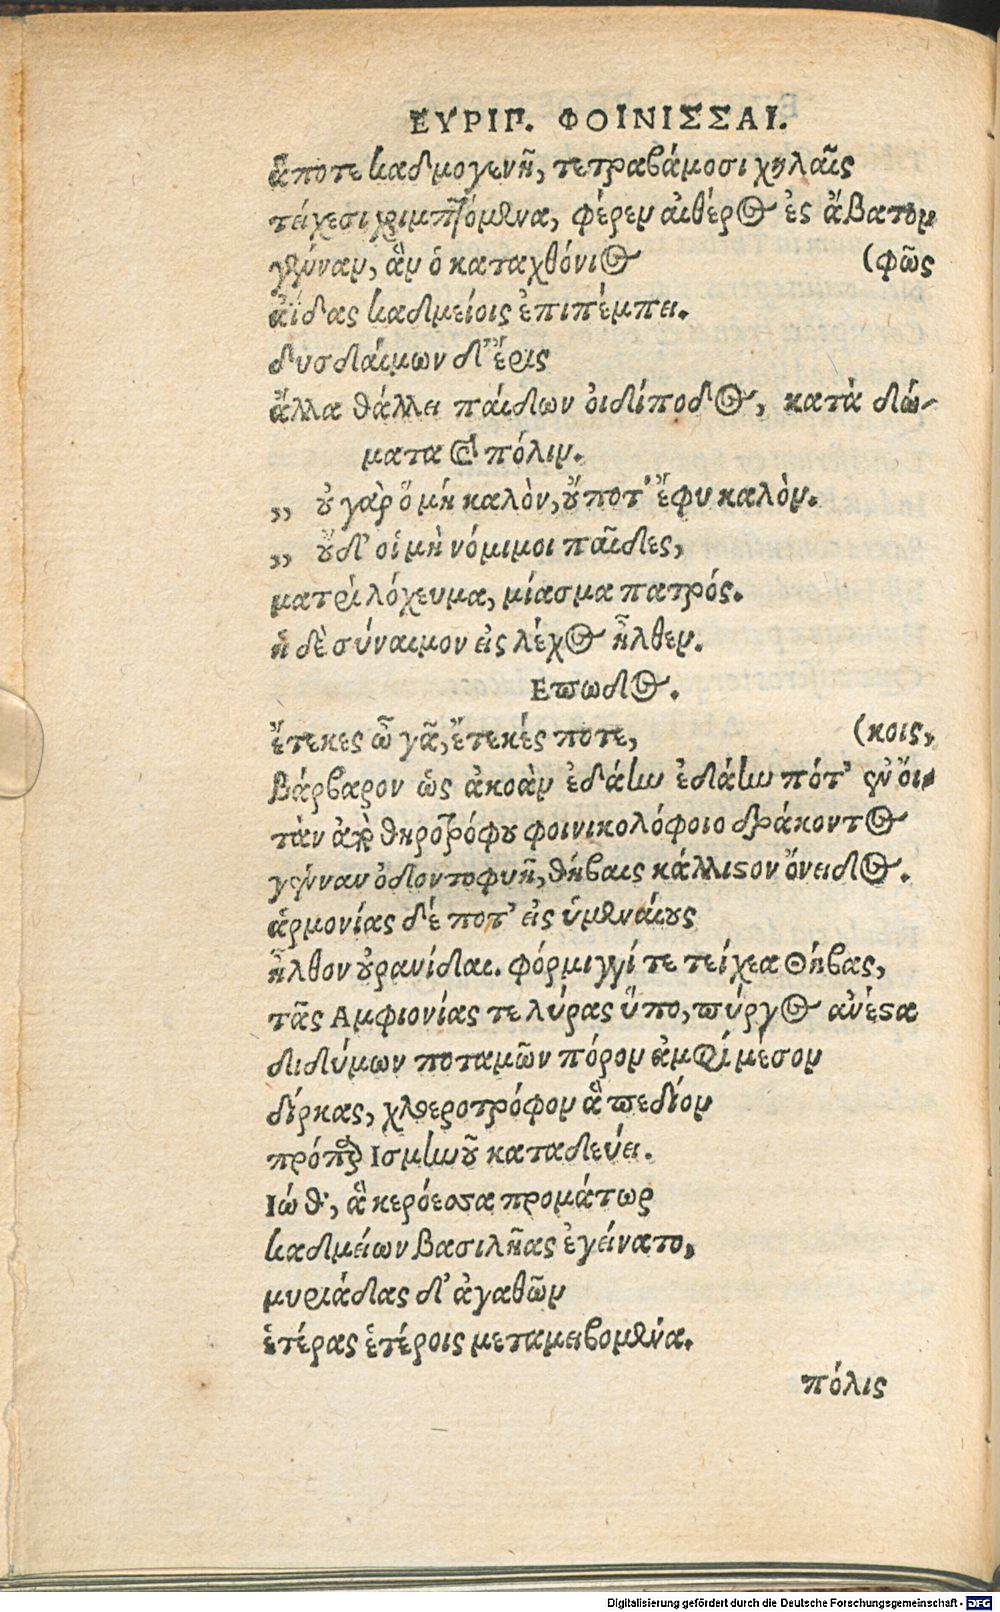 ΕΥΡΙΠ. ΦΟΙΝΙΣΣΑΙ.
ἅποτε καδμογενῆ, τετραβάμοσι χηλαῖς
τείχεσι χριμπτόμενα, φέρεν αἰθέρος ἐς ἄβατον
γένναν, ἃν ὁ καταχθόνιος (φῶς
ἀΐδας καδμείοις ἐπιπέμπει.
δυσδαίμων δ' ἔρις
ἄλλα θάλλει παίδων οἰδίποδος, κατὰ δώ-
ματα καὶ πόλιν.
,, οὐ γὰρ ὃ μὴ καλὸν, οὔποτ' ἔφυ καλὸν.
,, οὐδ' οἱ μὴ νόμιμοι παῖδες,
ματρὶ λόχευμα, μίασμα πατρός.
ἡ δὲ σύναιμον εἰς λέχος ἦλθεν.
Επωδος.
ἔτεκες ὦ γᾶ, ἔτεκές ποτε, (κοις,
βάρβαρον ὡς ἀκοὰν ἐδάην ἐδάην πότ' ἐν οἴ-
τὰν ἀπὸ θηροτρόφου φοινικολόφοιο δράκοντος
γένναν ὀδοντοφυῆ, θήβαις κάλλιστον ὄνειδος.
ἁρμονίας δέ ποτ' εἰς ὑμεναίους
ἦλθον οὐρανίδαι. φόρμιγγί τε τείχεα Θήβας,
τᾶς Αμφιονίας τε λύρας ὕπο, πύργος ἀνέστα
διδύμων ποταμῶν πόρον ἀμφὶ μέσον
δίρκας, χλοεροτρόφον ἃ πεδίον
πρόπαρ Ισμηνοῦ καταδεύει.
Ιώ θ', ἃ κερόεσσα προμάτωρ
καδμείων βασιλῆας ἐγείνατο,
μυριάδας δ' ἀγαθῶν
ἑτέρας ἑτέροις μεταμειβομένα.
πόλις
Digitalisierung gefördert durch die Deutsche Forschungsgemeinschaft - DFG